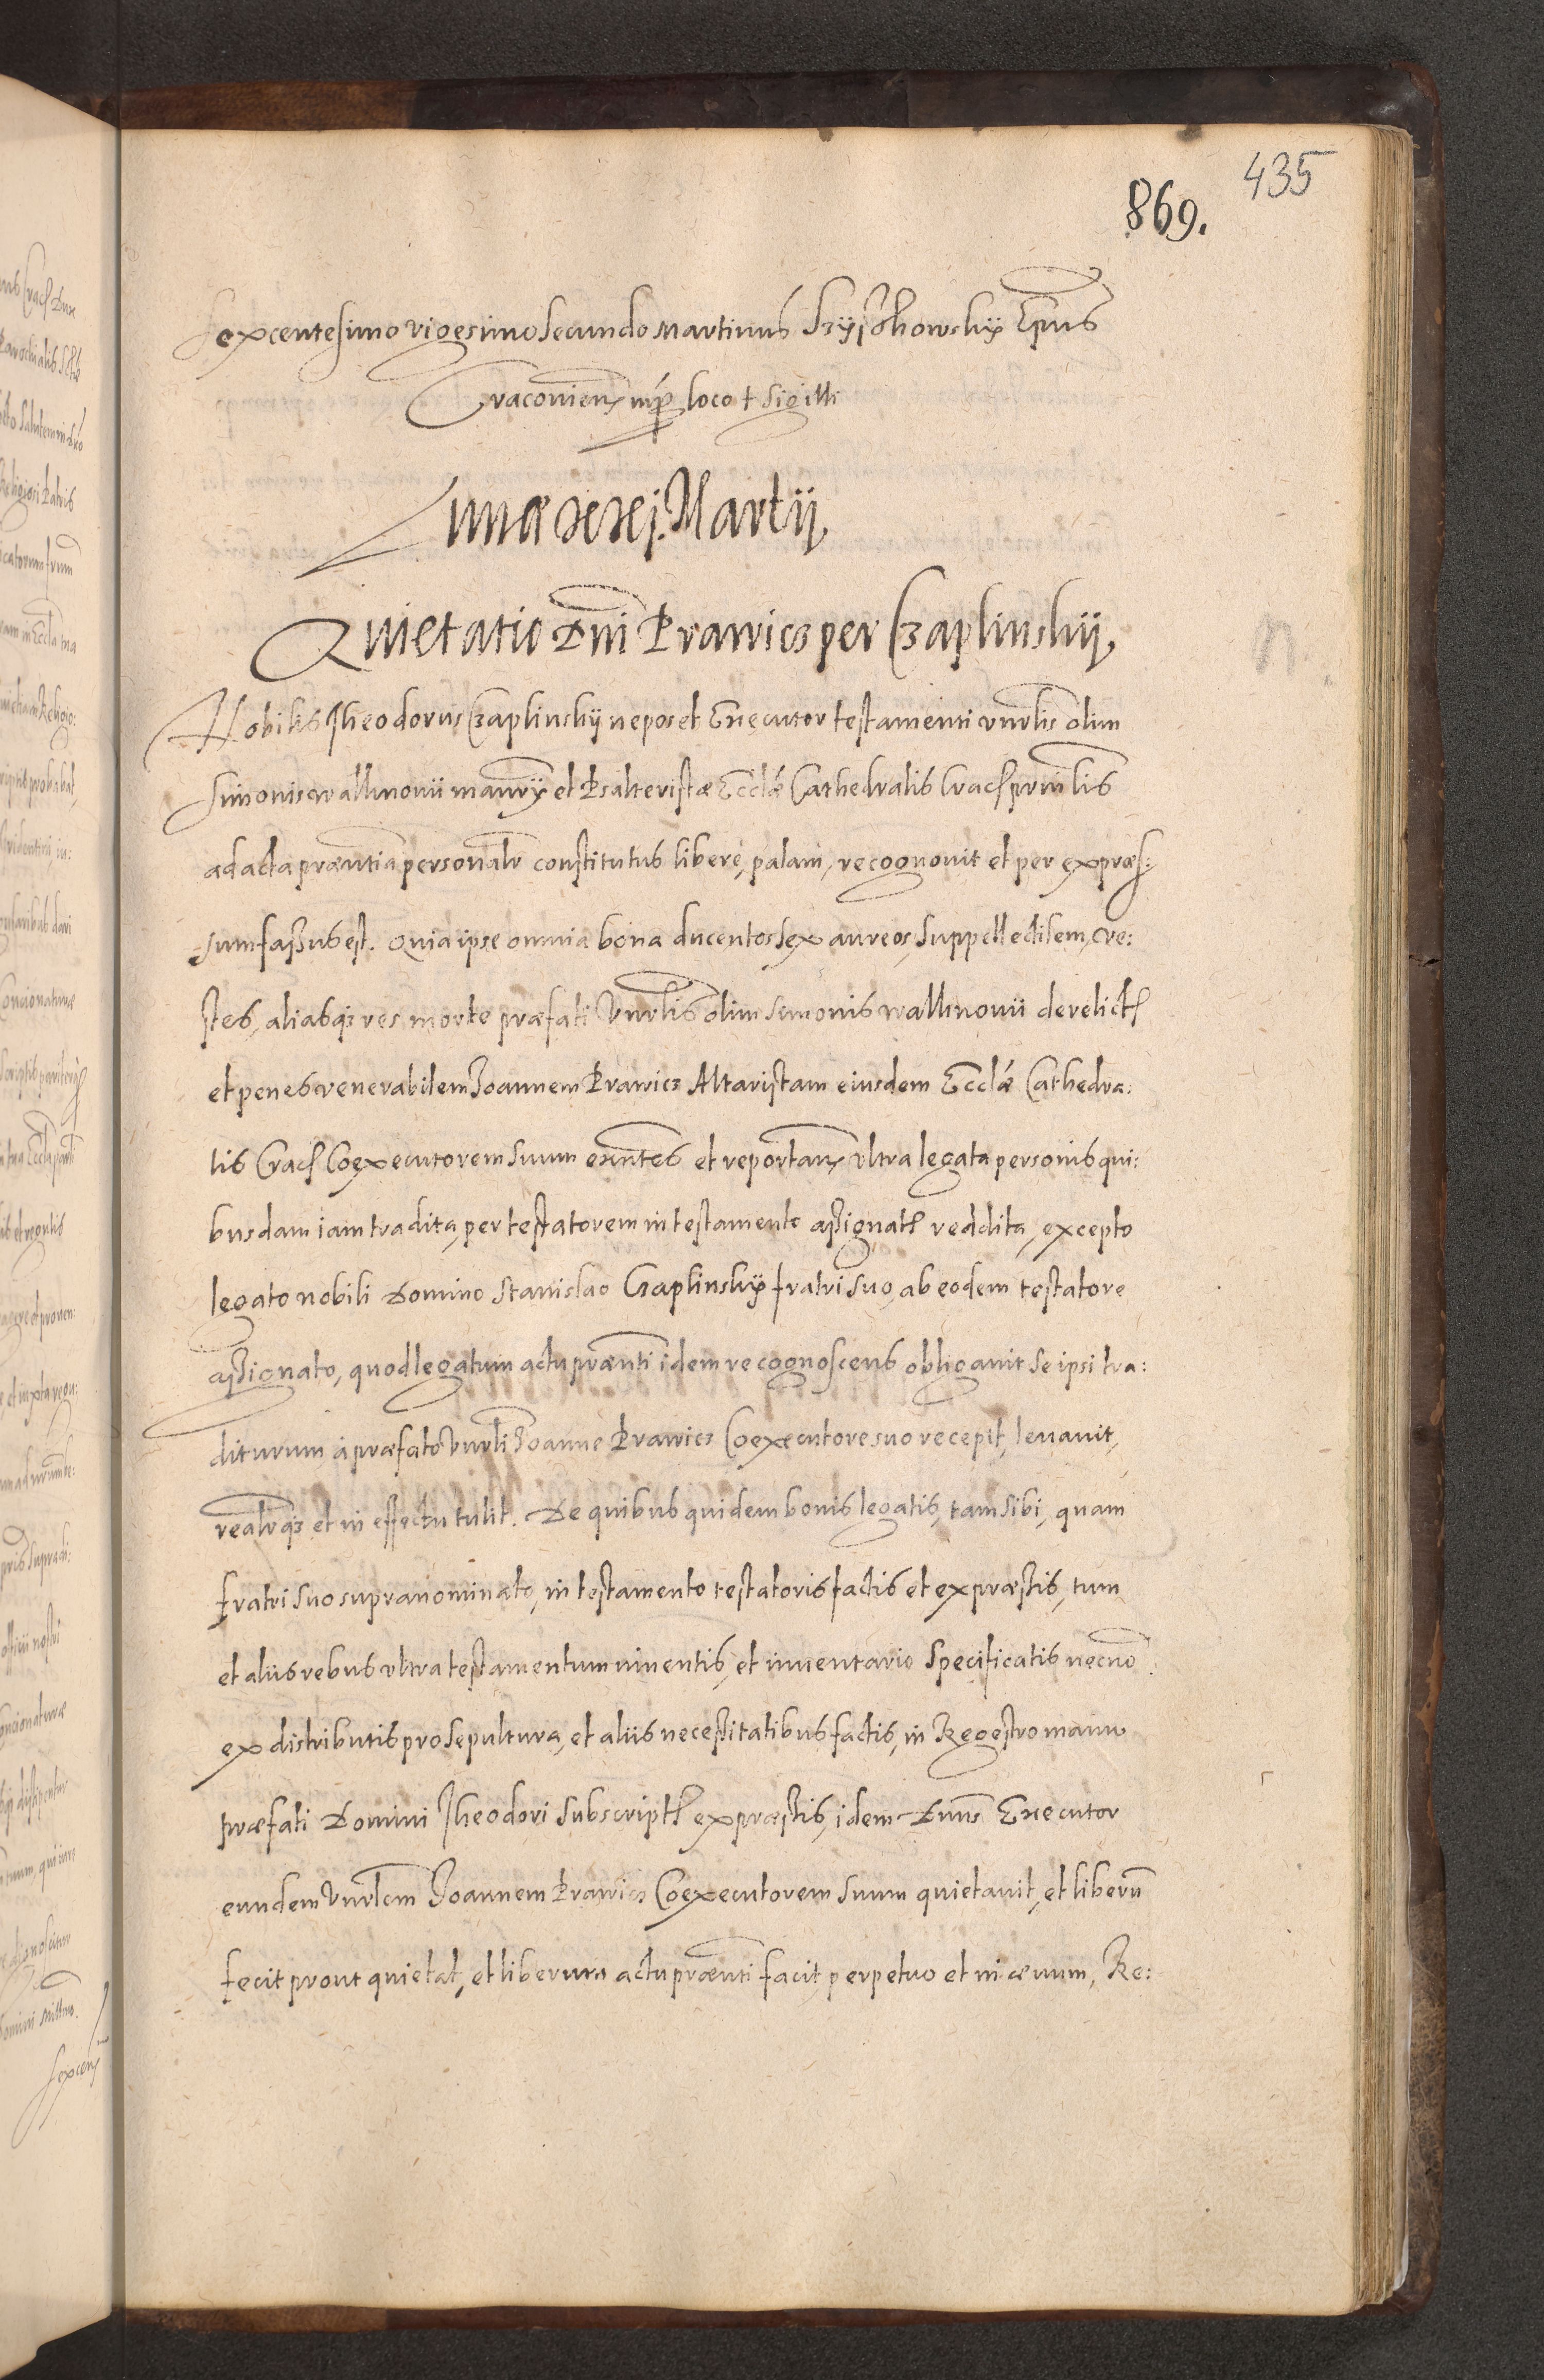 435
869.
Sexcentesimo vigesimo secundo Martinus Szyszkowsky Epūs
Cracovien mp loco † sigilli
Lunæ xxj. Martij.
Quietatio Dni Prawicz per Czaplinskij.
Nobilis Theodorus Czaplinskij nepos et Executor testamenti vnrlis olim
Simonis Wallinovii mansry et Psalteristæ Ecclæ Cathedralis Crac prnlis
ad acta prænti personalr constitutus liberè, palam, recognovit et per expræs:
sum fassus est. Quia ipse omnia bona ducentos sex aureos, suppellectilem, ve:
stes, aliasq3 res morte præfati Vnrlis olim Simonis Wallinovii derelict
et penes venerabilem Joannem Prawicz Altaristam eiusdem Ecclæ Cathedra:
lis Crac Coexecutorem suum exnntes et reportan vltra legata personis qui:
busdam iam tradita, per testatorem in testamento assignat reddita, excepto
legato nobili Domino Stanislao Czaplinsky fratri suo, ab eodem testatore
assignato, quod legatum actu prænti idem recognoscens obligavit se ipsi tra:
diturum à præfato Vnrli Joanne Prawicz Coexecutore suo recepit, levavit,
realrq3 et in effectu tulit. De quibus quidem bonis legatis, tam sibi, quam
fratri suo supranominato, in testamento testatoris factis et expræssis, tum
et aliis rebus vltra testamentum inventis, et inventario specificatis necno
ex distributis pro sepultura, et aliis necessitatibus factis, in Regestro manu
præfati Domini Theodori subscript expræssis, idem Dnus Executor
eundem Vnrlem Joannem Prawicz Coexecutorem suum quietavit, et liberū
fecit prout quietat, et liberum actu prænti facit perpetuo et in ævum, Re: